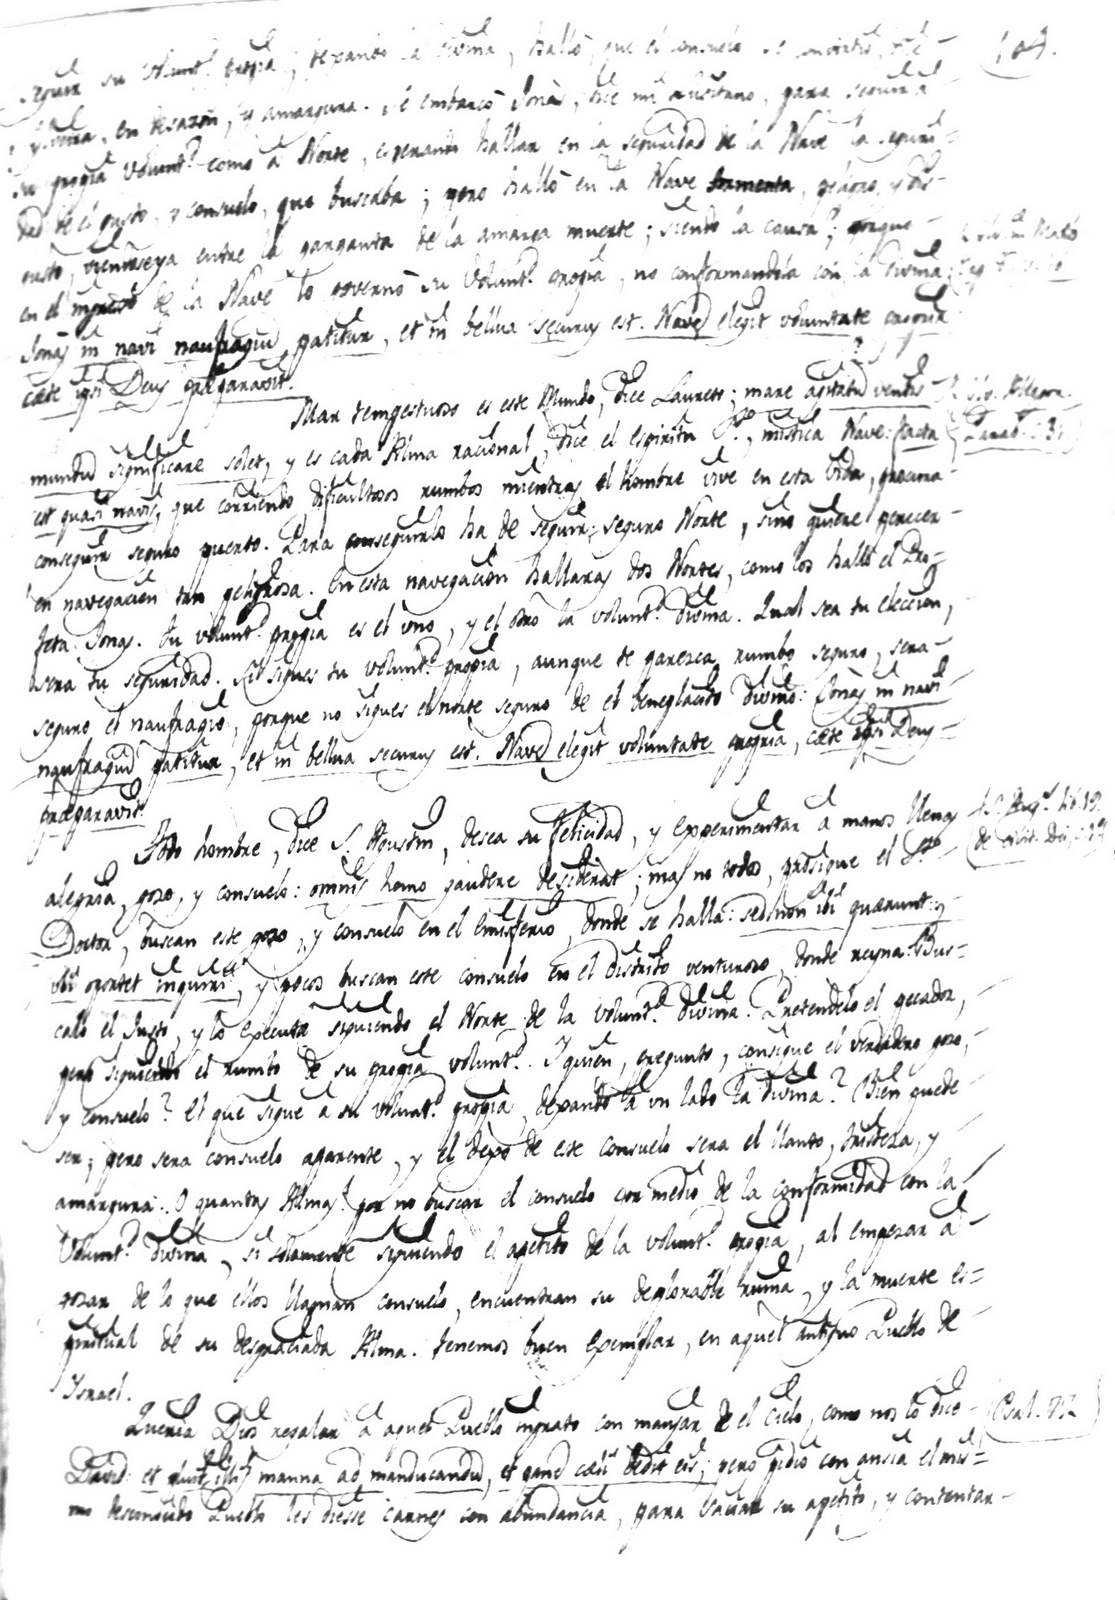 seguir su volunt.d propia, dexando la divina, halló, que el consuelo se
104.
en desazon, y amargura. Se embarcó Jonás, dice mi para seguir a
su propia volunt.d como a Norte, esperando hallar en la seguridad de la Nave la seguri-
dad de el gusto, y consuelo, que buscaba; pero halló en la Nave tormenta, peligro, y dis-
gusto, viendose ya entre la garganta de la amarga muerte; siendo la causa; porque
en el ingreso de la Nave lo governó su volunt.d propia, no conformandola con la divina;
Jonas in navi naufragiũ patitur, et in bellua securus est. Navẽ elegit voluntate propria
cæte ipsi Deus præparavit.
Mar tempestuoso es este Mundo, dice Laureto; mare agitatũ ventis
mundũ significare solet, y es cada Alma racional, dice el Espiritu S.to, mistica Nave: facta
est quasi navis, que corriendo dificultosos rumbos mientras el hombre vive en esta vida, procura
conseguir seguro puerto. Para conseguirlo ha de seguir seguro Norte, sino quiere perecer
en navegacion tan peligrosa. En esta navegacion hallarás dos Nortes, como los halló el Pro-
feta Jonas. Tu volunt.d propia es el uno, y el otro la volunt.d divina. Qual sea tu eleccion,
sera tu seguridad. Si sigues tu volunt.d propia, aunque te parezca rumbo seguro, sera
seguro el naufragio, porque no sigues el norte seguro de el beneplacito divino: Jonas in navi
naufragiũ patitur, et in bellua securus est. Navẽ elegit voluntate propria, cæte ipsi Deus
præparavit.
Todo hombre, dice S. Agustin, desea su felicidad, y experimentar a manos llenas
alegria, gozo, y consuelo: omnis homo gaudere desiderat; mas no todos, prosigue el S.to
Doctor, buscan este gozo, y consuelo en el emisferio, donde se halla: sed non ibi quærunt
ubi oportet inquiri, y pocos buscan este consuelo en el distrito venturoso, donde reyna. Bus-
calo el Justo, y lo executa siguiendo el Norte de la volunt.d divina. Pretendelo el pecador,
pero siguiendo el rumbo de su propia volunt.d. Y quien, pregunto, consigue el verdadero gozo,
y consuelo? El que sigue a su volunt.d propia, dexando a un lado la divina? Bien puede
ser; pero sera consuelo aparente, y el dexo de este consuelo sera el llanto, tristeza, y
amargura. O quantas Almas! por no buscar el consuelo con medio de la conformidad con la
Volunt.d divina, si solamente siguiendo el apetito de la volunt.d propia, al empezar a
gozar de lo que ellos llaman consuelo, encuentran su deplorable ruina, y la muerte es-
piritual de su desgraciada Alma. Tenemos buen exemplar, en aquel antiguo Pueblo de
Ysrael.
Queria Dios regalar a aquel Pueblo ingrato con manjar de el Cielo, como nos lo dice
Psal. 77.
David: et pluit illis manna ad manducandũ, et panẽ cæli dedit eis; pero pidio con ansia el mis-
mo desconocido Pueblo les diesse carnes con abundancia, para saciar su apetito, y contentar-